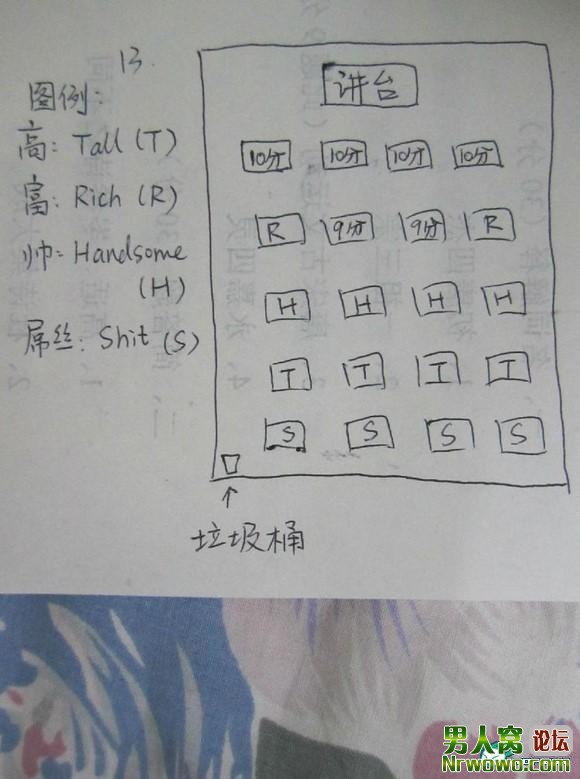 13.
图例:
高: Tall (T)
富: Rich (R)
帅: Handsome
(H)
屌丝: Shit (S)
讲台
10分 10分 10分 10分
R 9分 9分 R
H H H H
T T T T
S S S S
垃圾桶
男人窝 论坛
Nrwowo.com